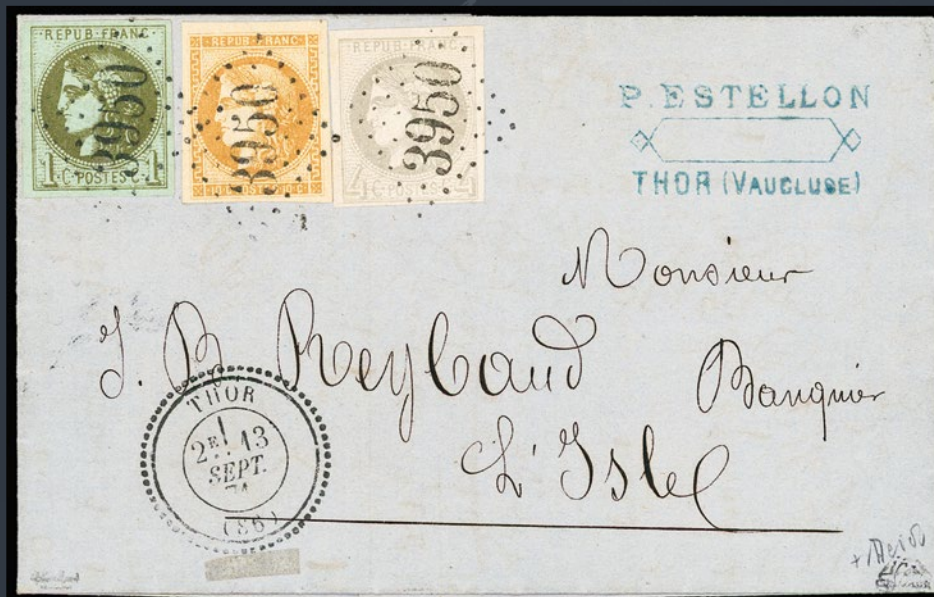 REPUB·FRANC
3950
1 C·POSTES·C 1
REPUB·FRANC
3950
10 C·POSTES·10 C
REPUB·FRANC
3950
4 C·POSTES·C 4
P. ESTELLON
THOR (VAUCLUSE)
Monsieur
J. B. Reybaud Banquier
L'Isle
THOR
2E 13
SEPT.
71
(86)